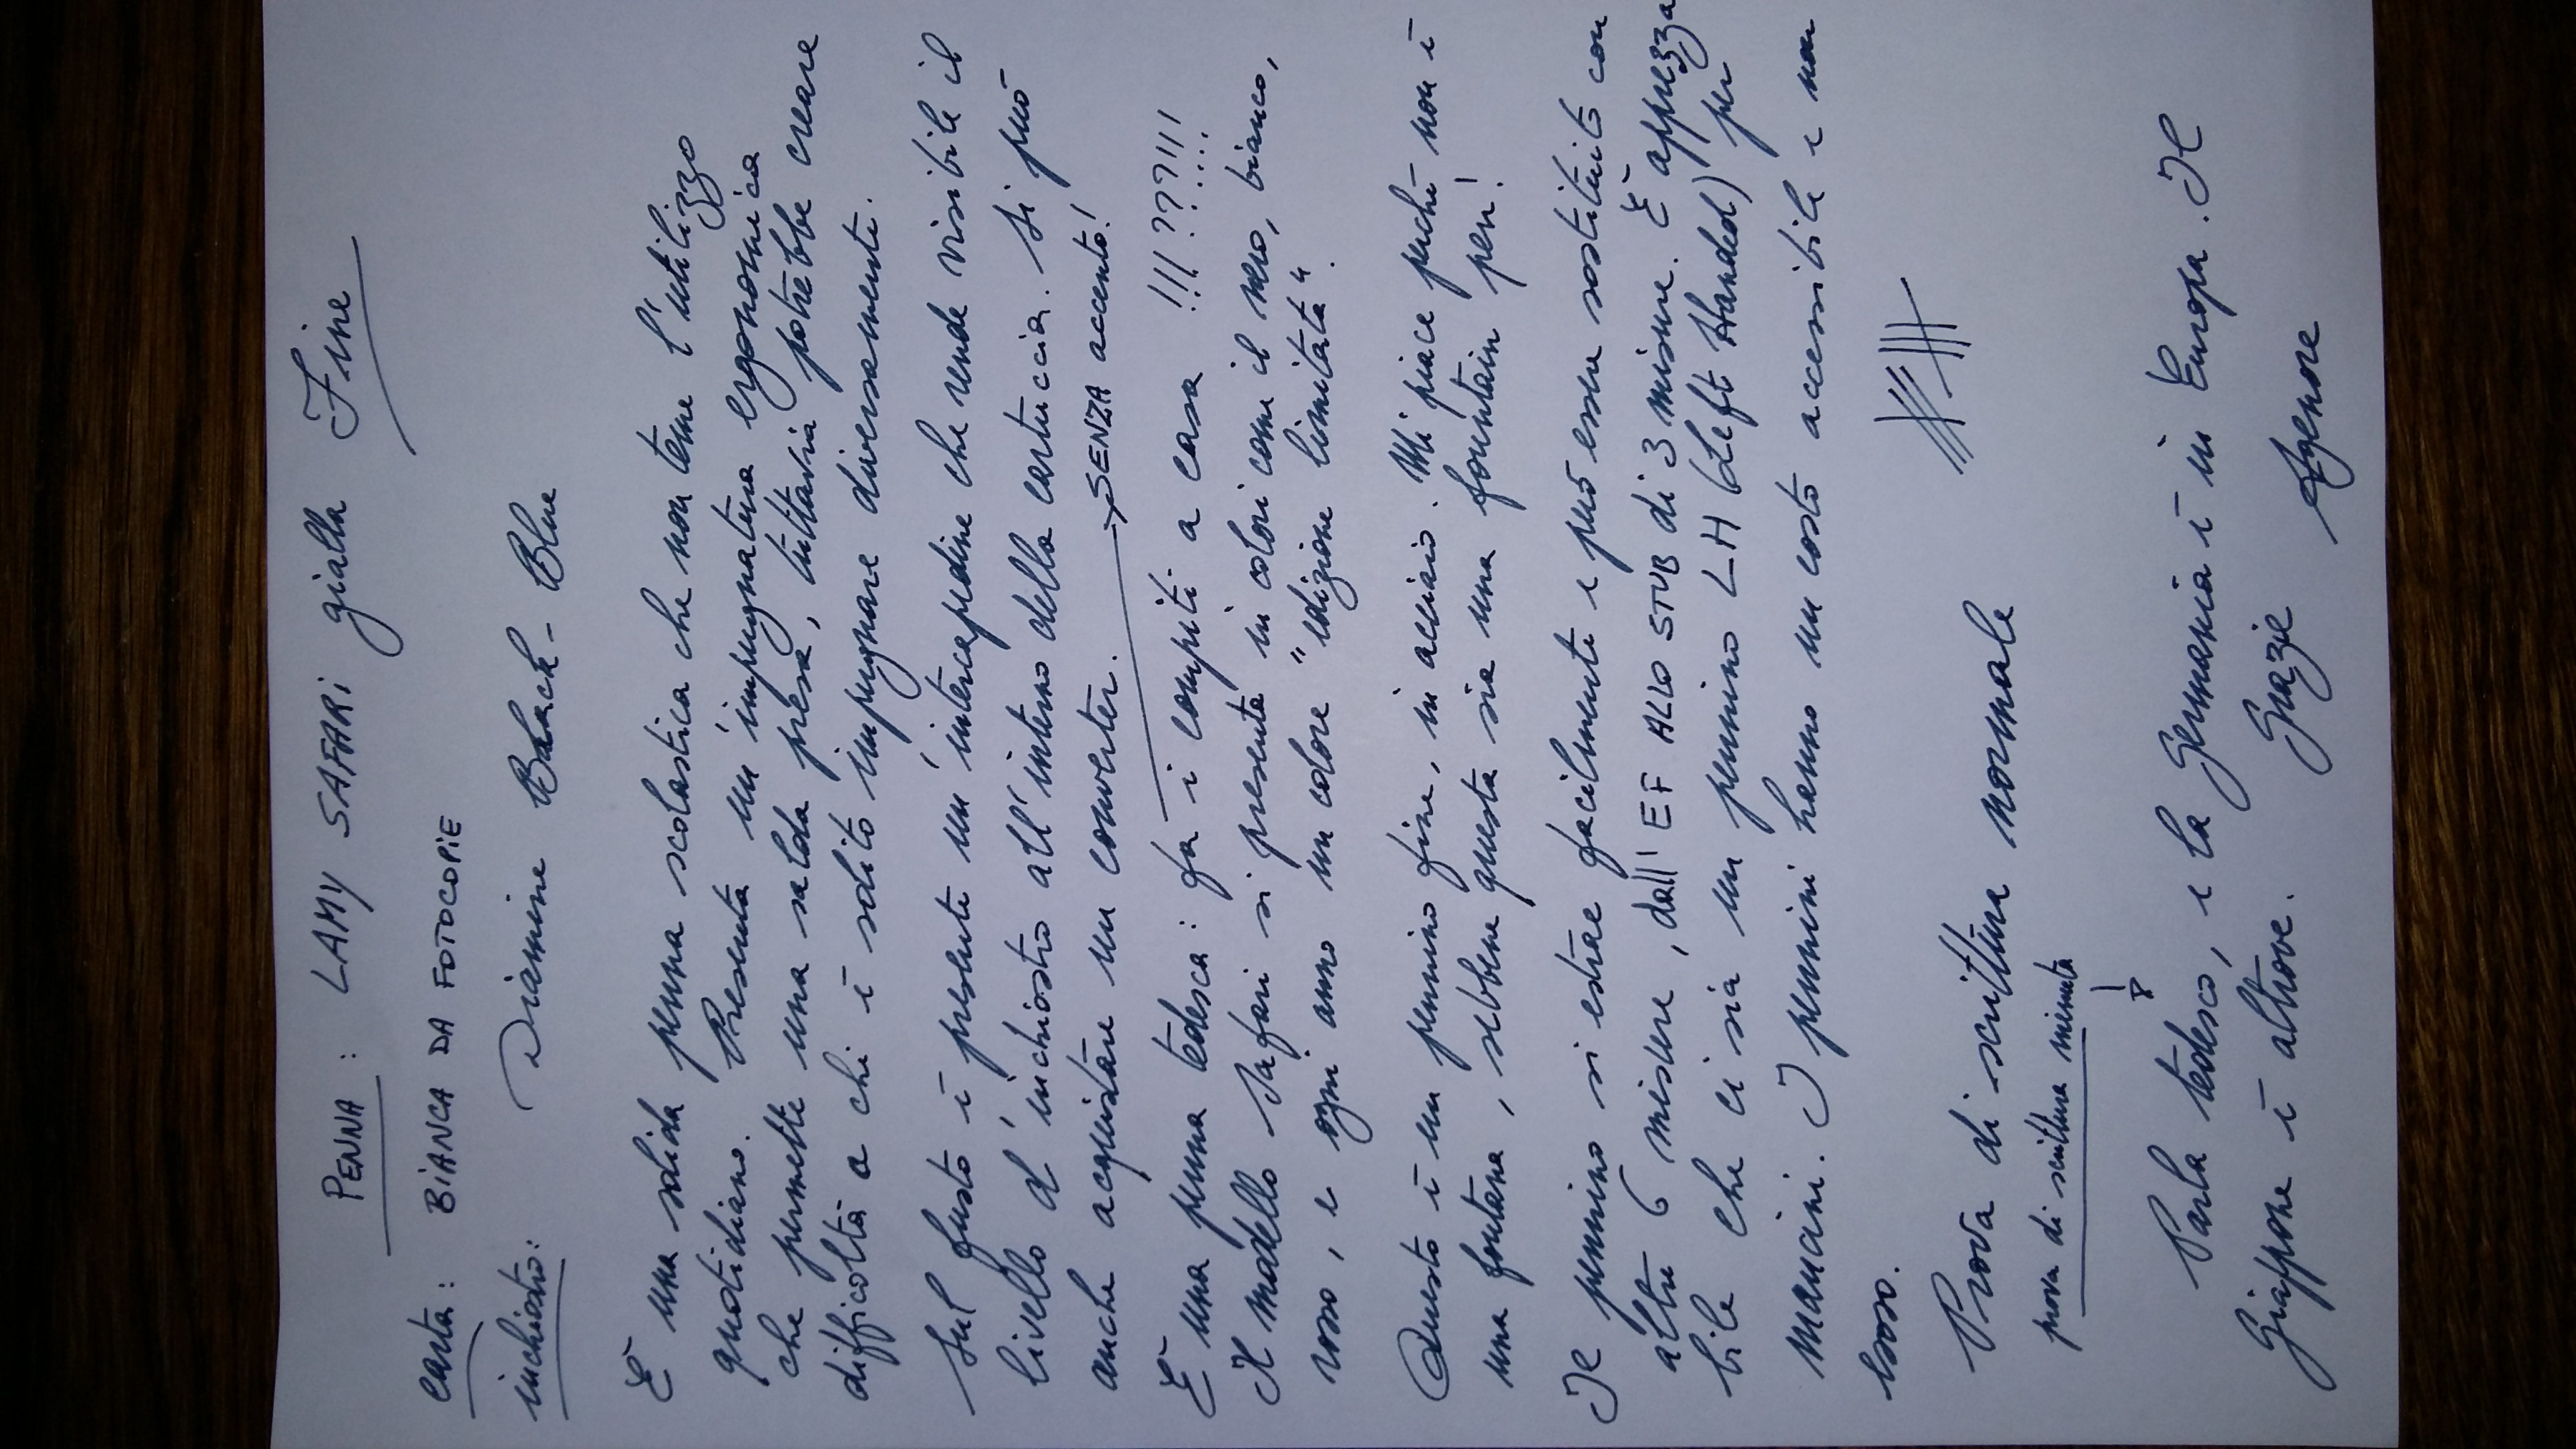 PENNA : LAMY SAFARI gialla Fine
carta: BIANCA DA FOTOCOPIE
inchiostro: Diamine Black-Blue
È una solida penna scolastica che non teme l'utilizzo
quotidiano. Presenta un'impugnatura ergonomica
che permette una salda presa, tuttavia potrebbe creare
difficoltà a chi è solito impugnare diversamente.
Sul fusto è presente un'intercapedine che rende visibile il
livello d'inchiostro all'interno della cartuccia. Si può
anche acquistare un converter.
SENZA accento!
È una penna tedesca: fa i compiti a casa !!!???!!!
Il modello Safari si presenta in colori come il nero, bianco,
rosso, e ogni anno un colore "edizione limitata".
Questo è un pennino fine, in acciaio. Mi piace perché non è
una fontana, sebbene questa sia una fountain pen!
Il pennino si estrae facilmente e può essere sostituito con
altre 6 misure, dall'EF ALLO STUB di 3 misure. È apprezza
bile che ci sia un pennino LH (Left Handed) per
mancini. I pennini hanno un costo accessibile e non
esoso.
Prova di scrittura normale
prova di scrittura minuta
Parla tedesco, e la Germania è in Europa. Il
Giappone è altrove. Grazie
Agenore